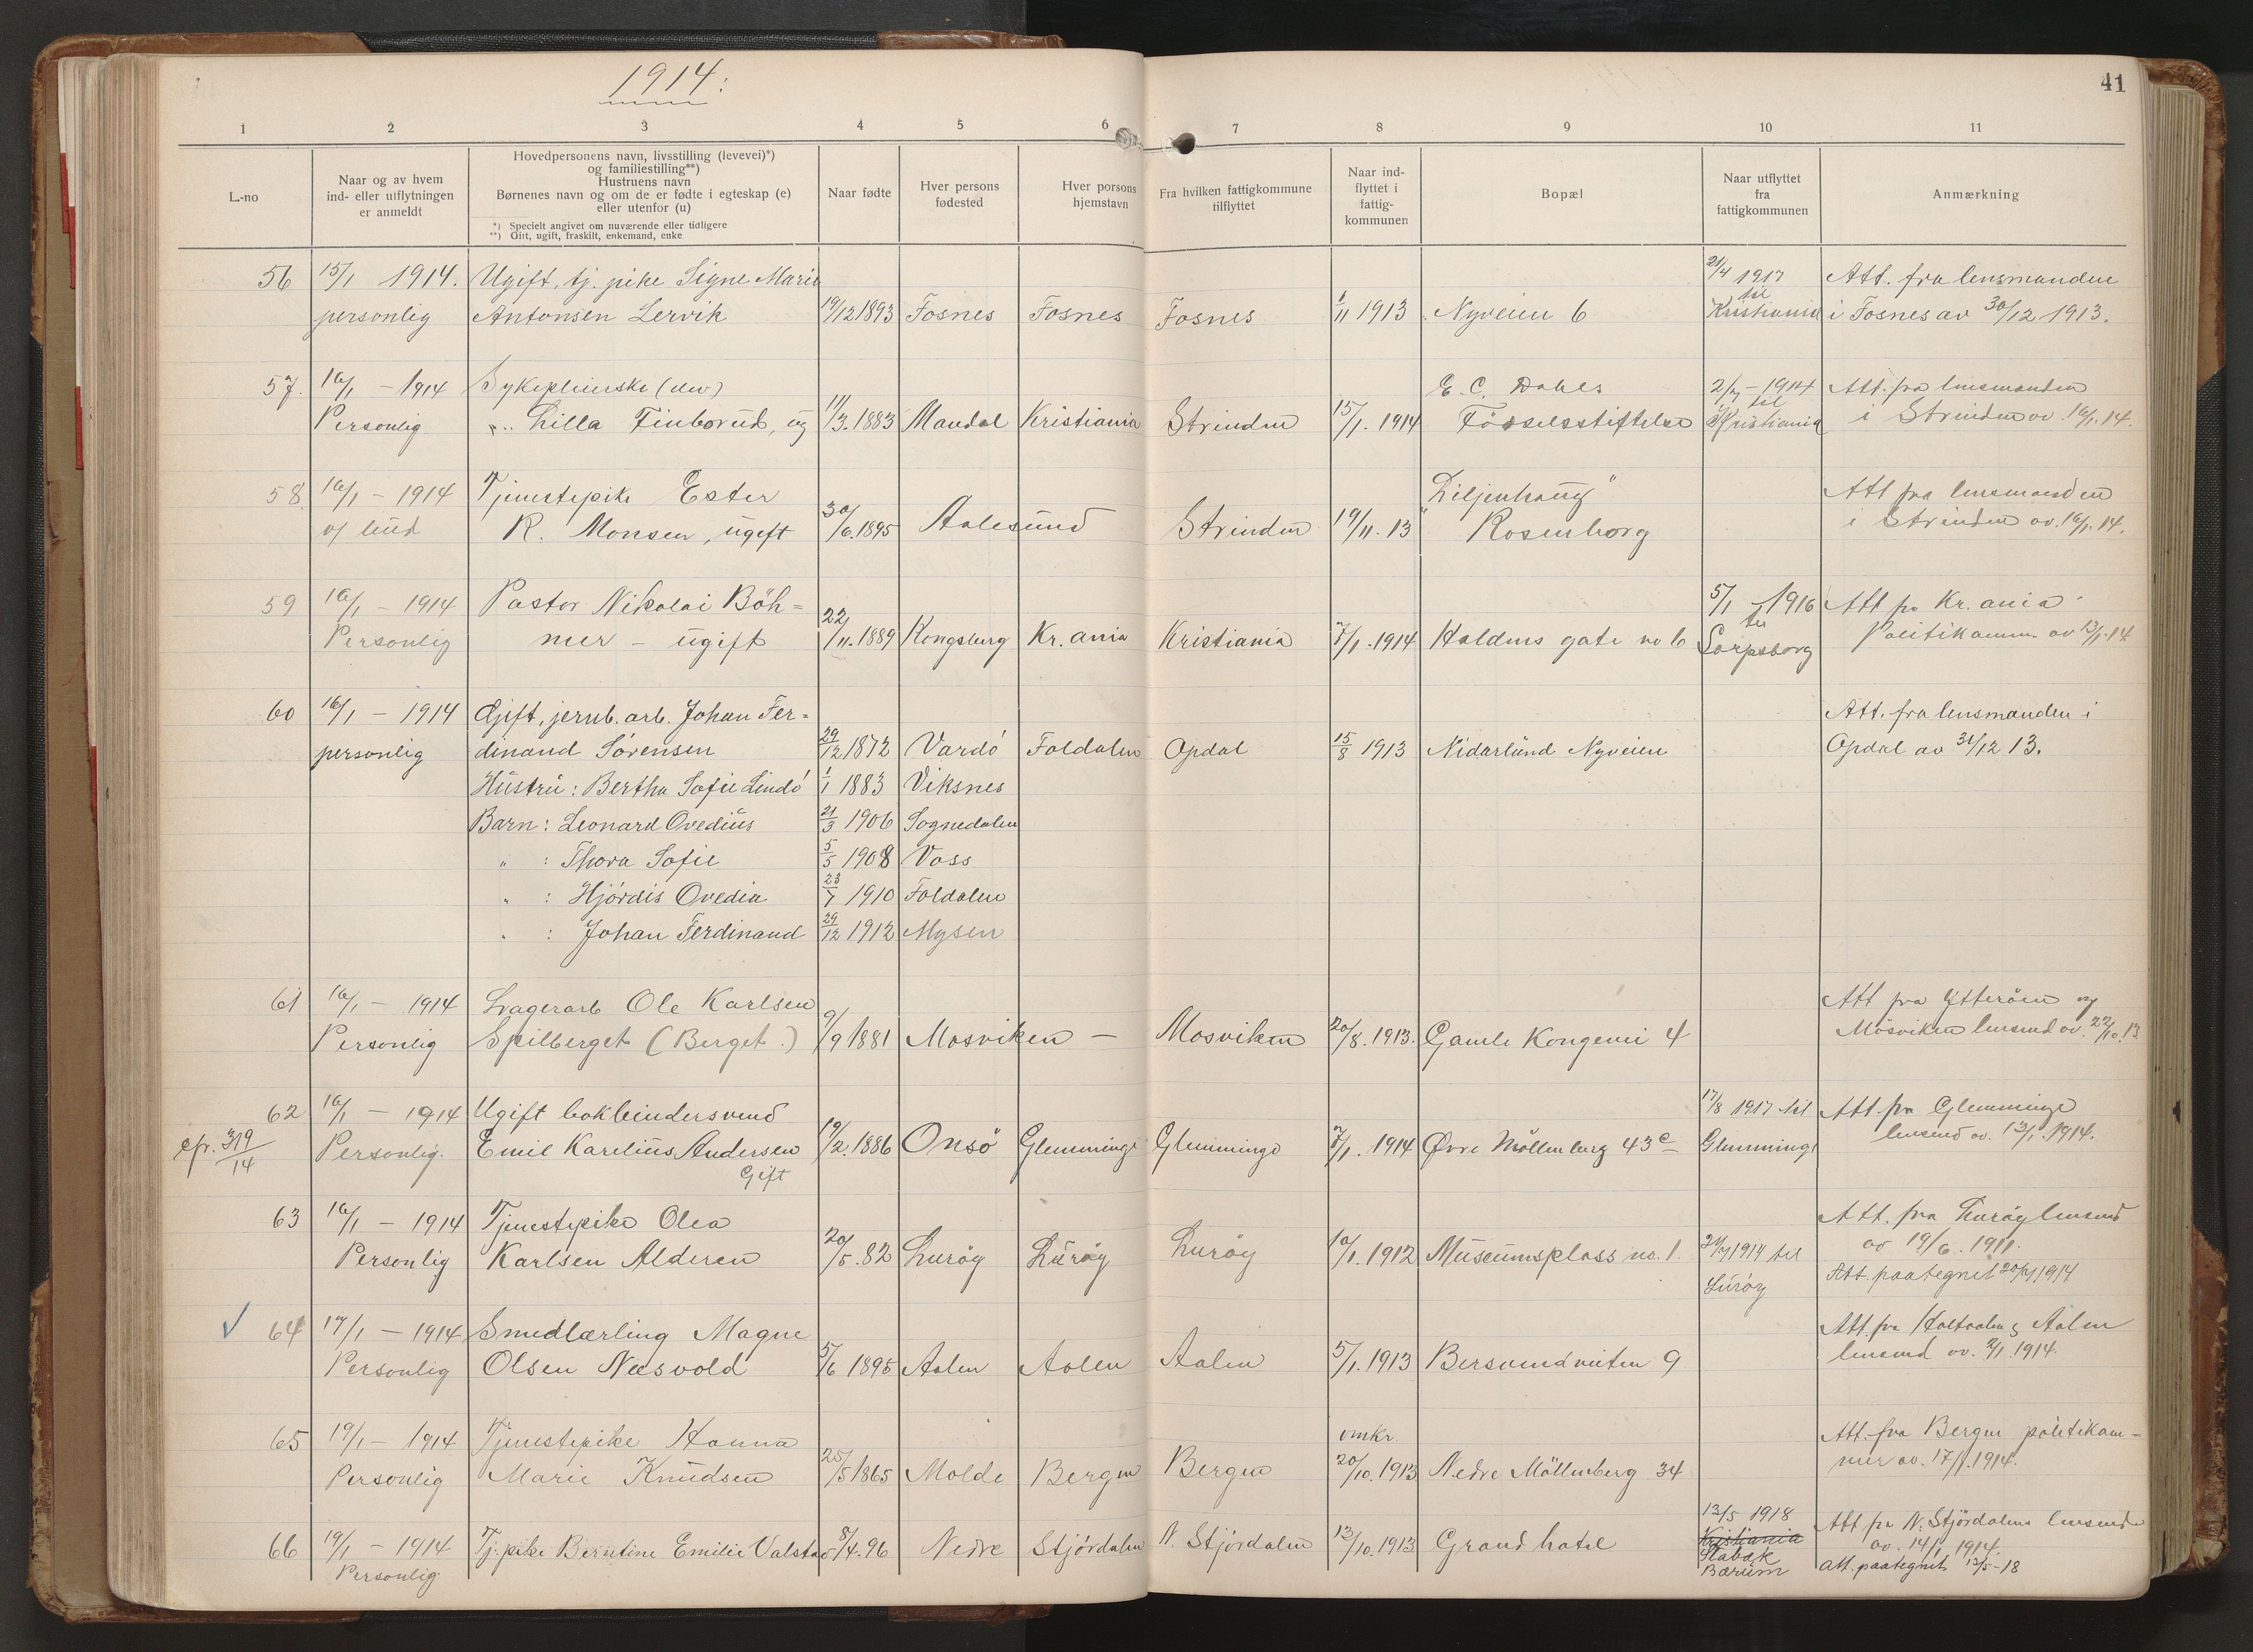 1914:
41
1 2 3 4 5 6 7 8 9 10 11
L.-no
Naar og av hvem
ind- eller utflytningen
er anmeldt
Hovedpersonens navn, livsstilling (levevei)*)
og familiestilling**)
Hustruens navn
Børnenes navn og om de er fødte i egteskap (e)
eller utenfor (u)
*) Specielt angivet om nuværende eller tidligere
**) Gift, ugift, fraskilt, enkemand, enke
Naar fødte
Hver persons
fødested
Hver persons
hjemstavn
Fra hvilken fattigkommune
tilflyttet
Naar ind-
flyttet i
fattig-
kommunen
Bopæl
Naar utflyttet
fra
fattigkommunen
Anmærkning
56 15/1 1914. Ugift, tj. pike Signe Marie 21/4 1917 Att. fra lensmanden
til
personlig Antonsen Lervik 19/12 1893 Fosnes Fosnes Fosnes 1/11 1913 Nyveien 6 Kristiania i Fosnes av 30/12 1913.
57. 16/1 – 1914 Sykepleierske (elev) E. C. Dahls 2/7 – 1914 Att. fra lensmanden
til
Personlig Lilla Finborud, ug 11/3. 1883 Mandal Kristiania Strinden 15/1. 1914 Födselsstiftelse Kristiania i Strinden av. 16/1. 14.
58. 16/1 – 1914 Tjenestepike Ester "Liljenhaug" Att fra lensmanden
og bud R. Monsen, ugift 30/6. 1895 Aalesund Strinden 19/11. 13 Rosenborg i Strinden av. 16/1. 14.
59 16/1 – 1914 Pastor Nikolai Böh= 5/1 – 1916 Att fra Kr.ania
til
Personlig mer – ugift 22/11. 1889 Kongsberg Kr.ania Kristiania 7/1. 1914 Haldens gate no 6 Sarpsborg Politikamm. av 13/1. 14
60 16/1 – 1914 Gift, jernb. arb. Johan Fer= Att. fra lensmanden i
personlig dinand Sörensen 29/12 1872 Vardö Foldalen Opdal 15/8 1913 Nidarlund Nyveien Opdal av 31/12 13.
Hustru: Bertha Sofie Lindö 1/1 1883 Viksnes
Barn: Leonard Ovedius 21/3 1906 Sognedalen
" : Thora Sofie 5/5 1908 Voss
" : Hjördis Ovedia 23/7 1910 Foldalen
" : Johan Ferdinand 29/12 1912 Mysen
61 16/1 – 1914 Lagerarb Ole Karlsen Att fra Ytteröen og
Personlig Spilberget (Berget.) 9/9 1881 Mosviken – Mosviken 20/8. 1913. Gamle Kongevei 4 Mosviken lensmd av. 22/10. 13
62 16/1 – 1914 Ugift bokbindersvend 17/8 1917 til Att fra Glemminge
cfr. 319/14 Personlig. Emil Karelius Andersen 19/2. 1886 Onsö Glemminge Glemminge 7/1. 1914 Øvre Möllenberg 43c Glemminge lensmd av. 13/1. 1914.
Gift
63 16/1 – 1914 Tjenestepike Olea Att. fra Luröy lensmd
Personlig Karlsen Alderen 20/5. 82 Luröy Luröy Luröy 10/1. 1912 Museumsplass no. 1. 1914 til av 19/6. 1911.
Luröy Att. paategnet 1914
64 17/1 – 1914 Smedlærling Magne Att. fra Holtaalen & Aalen
Personlig Olsen Næsvold 5/6 1895 Aalen Aalen Aalen 5/1. 1913 Bersvendveiten 9 lensmd av. 1914.
65 19/1 – 1914 Tjenestepike Hanna omkr. Att. fra Bergen politikam-
Personlig Marie Knudsen 25/5 1865 Molde Bergen Bergen 20/10. 1913 Nedre Möllenberg 34 mer av. 17/1. 1914.
66 19/1 – 1914 Tj. pike Berntine Emilie Valstad 8/4. 96 Nedre Stjördalen N. Stjördalen 13/10. 1913 Grand hotel 13/5 1918 Att fra N. Stjördalens lensmd
Personlig Kristiania av. 14/1 1914.
Stabæk
Bærum att. paategnet 13/5-18